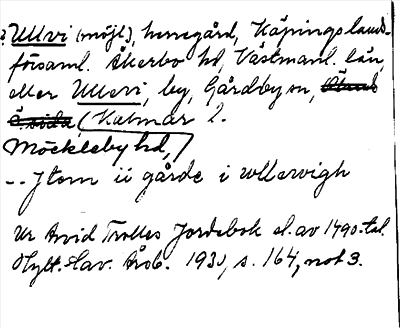 ? Ullvi (möjl.), herregård, Köpings lands-
församl. Åkerbo hd, Västmanl. län,
eller Ullevi, by, Gårdby sn, Ölands
ö. sida (Kalmar l.
Möckleby hd,)
-- Jtem ii gårde i wllervigh
Ur Arvid Trolles Jordebok sl. av 1490-tal.
Hylt.-Cav. Årsb. 1930, s. 164, not 3.